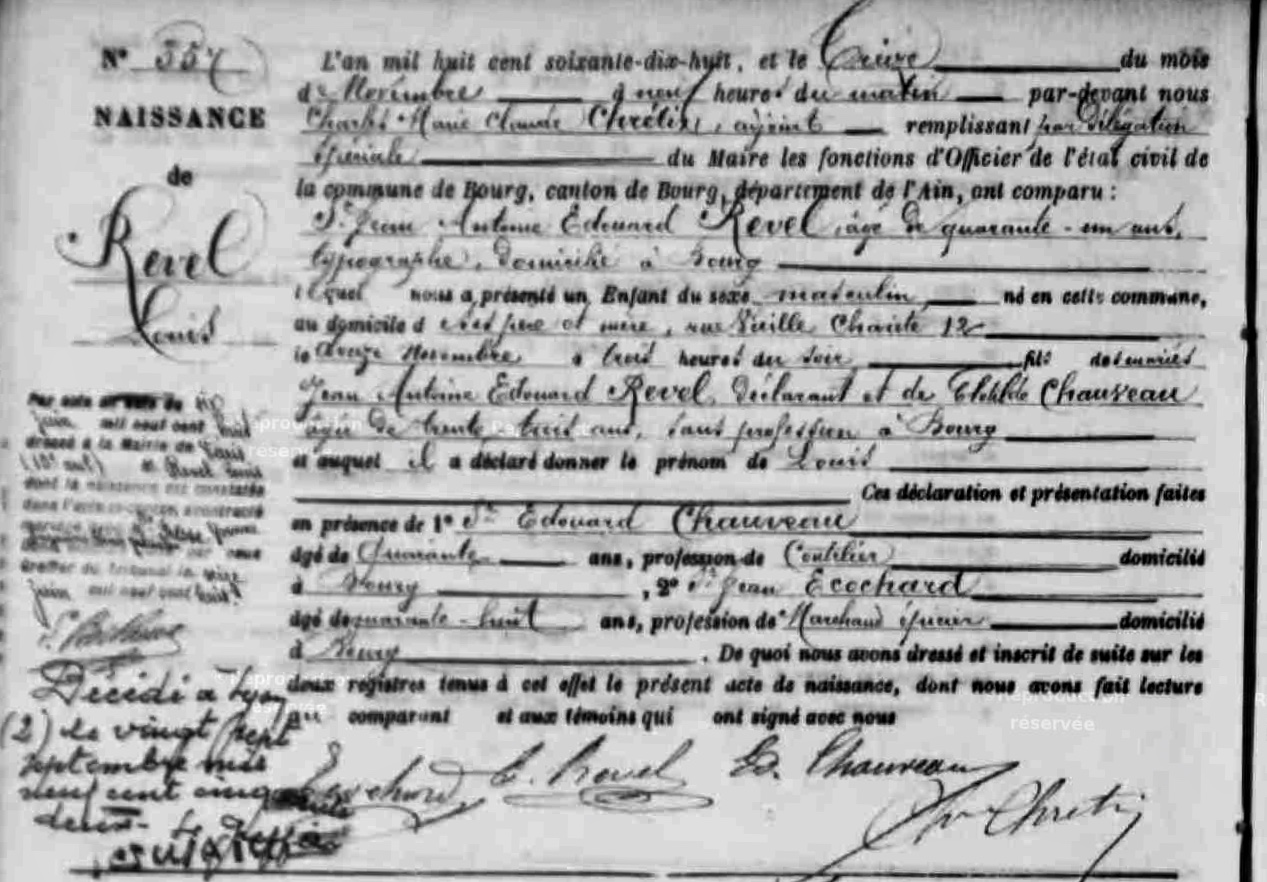 N° 357
NAISSANCE
de
Revel
Louis
L'an mil huit cent soixante-dix-huit, et le Treize du mois
de Novembre à neuf heures du matin par-devant nous
Charles Marie Claude Chrétin, adjoint remplissant par délégation
spéciale du Maire les fonctions d'Officier de l'état civil de
la commune de Bourg, canton de Bourg, département de l'Ain, ont comparu :
Sr Jean Antoine Edouard Revel, âgé de quarante-un ans,
typographe, domicilié à Bourg
lequel nous a présenté un Enfant du sexe masculin né en cette commune,
au domicile de ses père et mère, rue Vieille Charité 12
le onze Novembre à trois heures du soir, fils des mariés
Jean Antoine Edouard Revel, déclarant et de Clotilde Chauveau
âgée de trente trois ans, sans profession à Bourg
et auquel il a déclaré donner le prénom de Louis
Ces déclaration et présentation faites
en présence de 1° Sr Edouard Chauveau
âgé de Quarante ans, profession de Coutelier domicilié
à Bourg, 2° Sr Jean Ecochard
âgé de quarante-huit ans, profession de Marchand épicier domicilié
à Bourg. De quoi nous avons dressé et inscrit de suite sur les
deux registres tenus à cet effet le présent acte de naissance, dont nous avons fait lecture
au comparant et aux témoins qui ont signé avec nous
Ecochard E. Revel Ed. Chauveau
Chrétin
Par acte
juin mil neuf cent huit
dressé à la Mairie de Paris
Revel Louis
dont la naissance est constatée
dans l'acte ci-contre a contracté
mariage avec
greffier du tribunal le
juin mil neuf cent huit
Décédé à Lyon
(2) le vingt sept
septembre mil
neuf cent cinquante
deux. Le Greffier
Reproduction
réservée